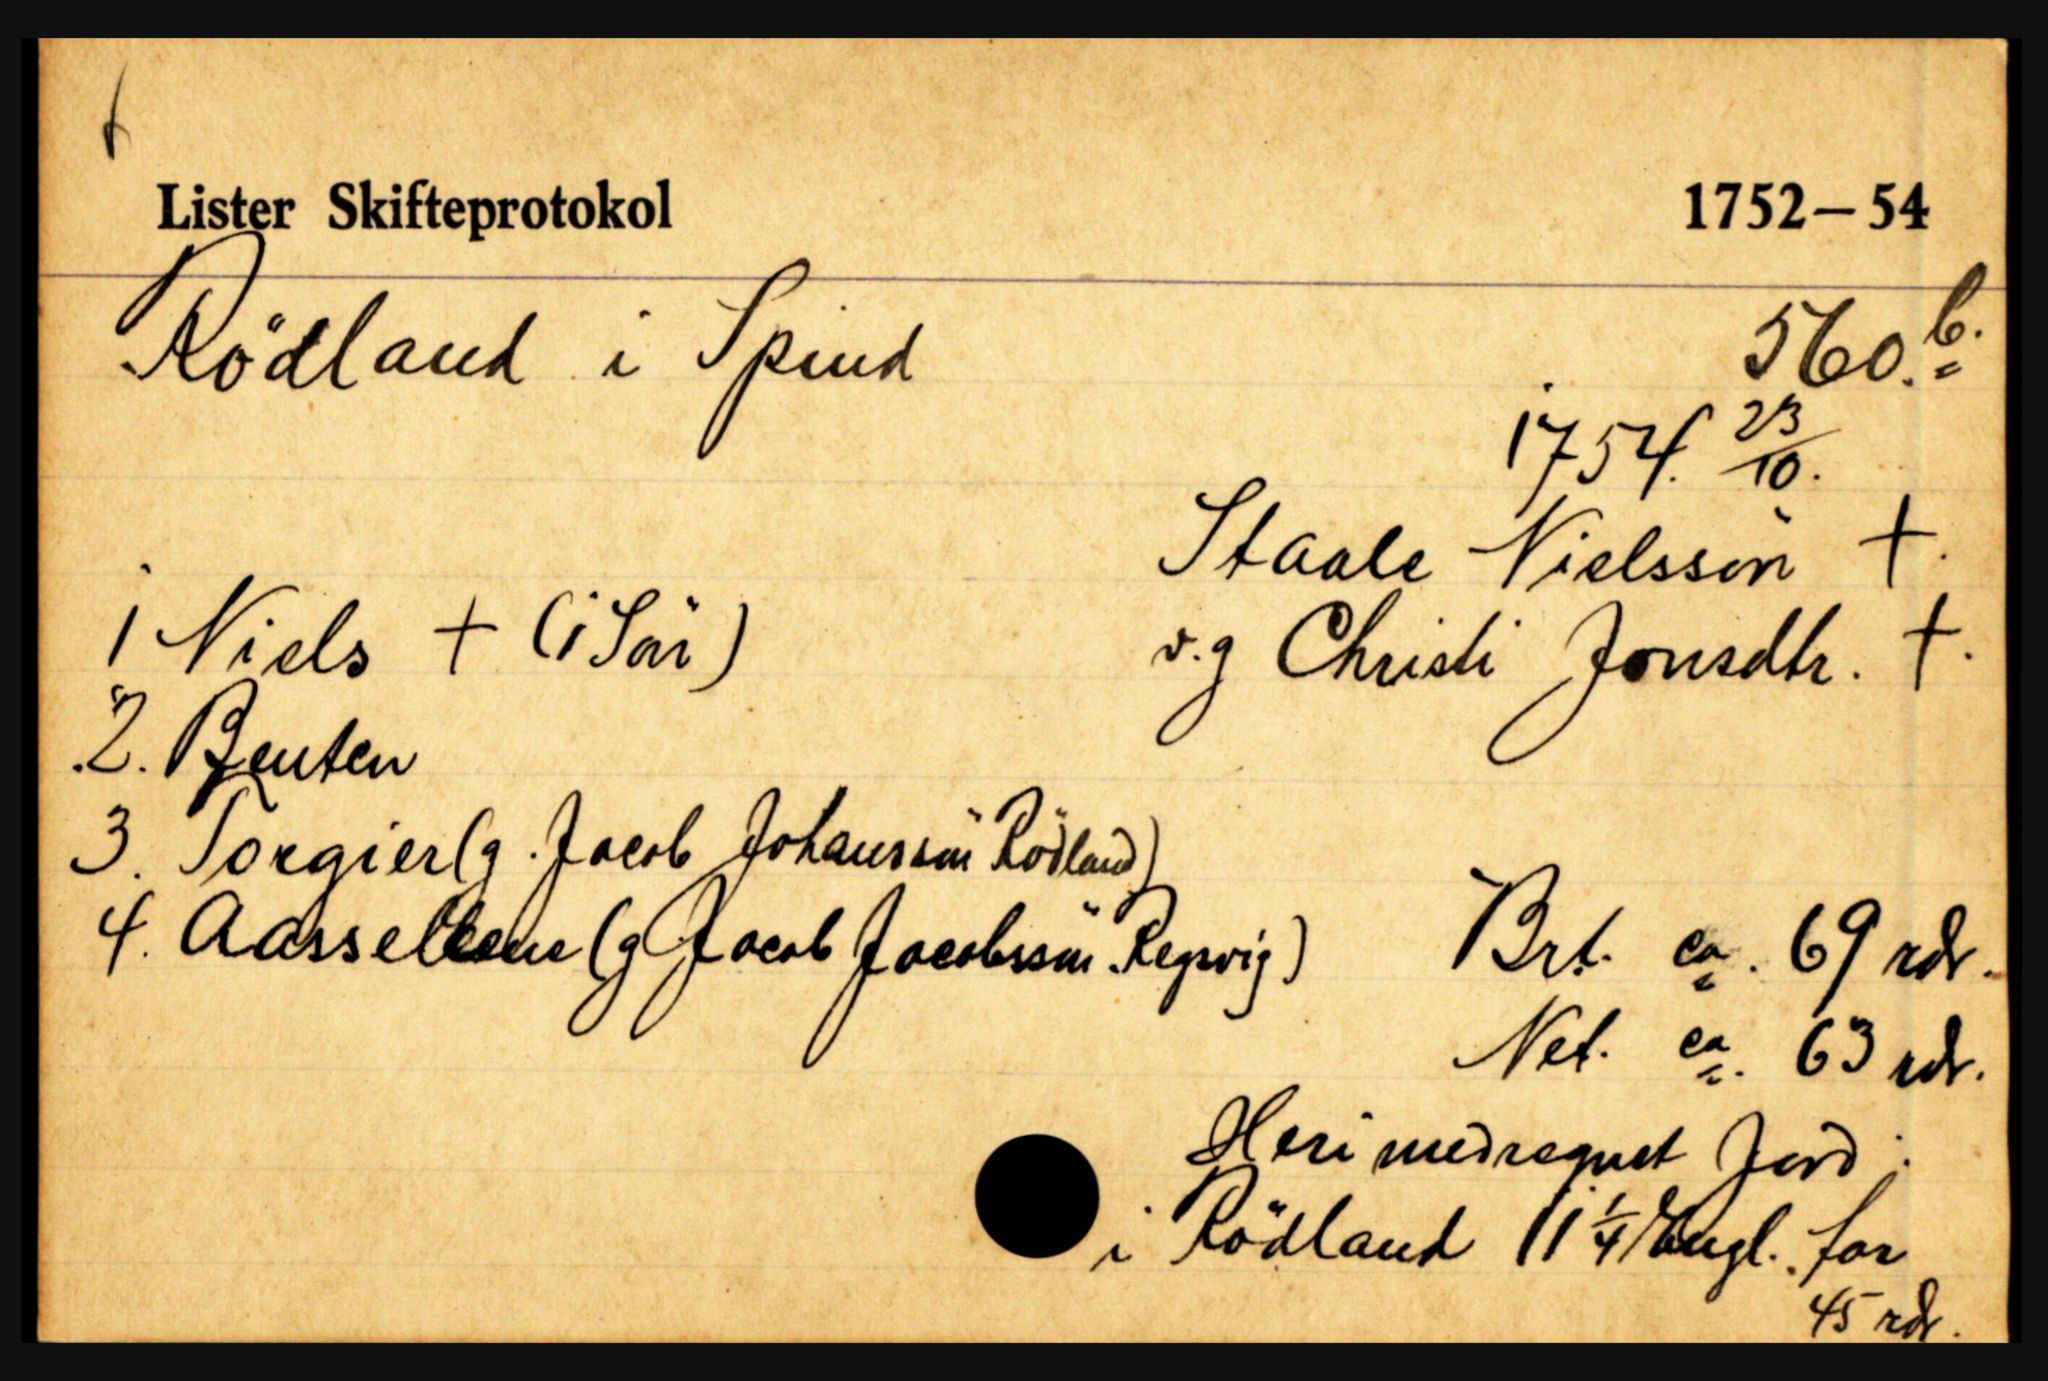 Lister Skifteprotokol 1752–54
Rödland i Spind 560.b.
1754. 23/10.
Staale Nielssön +.
1 Niels + (i Sör)
v.g Christi Jonsdtr. +.
2. Benten
3. Torgier (g. Jacob Johanssön Rödland)
4. Aassellene (g Jacob Jacobssön Repsvig)
Brt. ca. 69 rdr.
Net. ca. 63 rdr.
Heri medregnet Jord i
i Rödland 11 1/4 Engl. for
45 rdr.